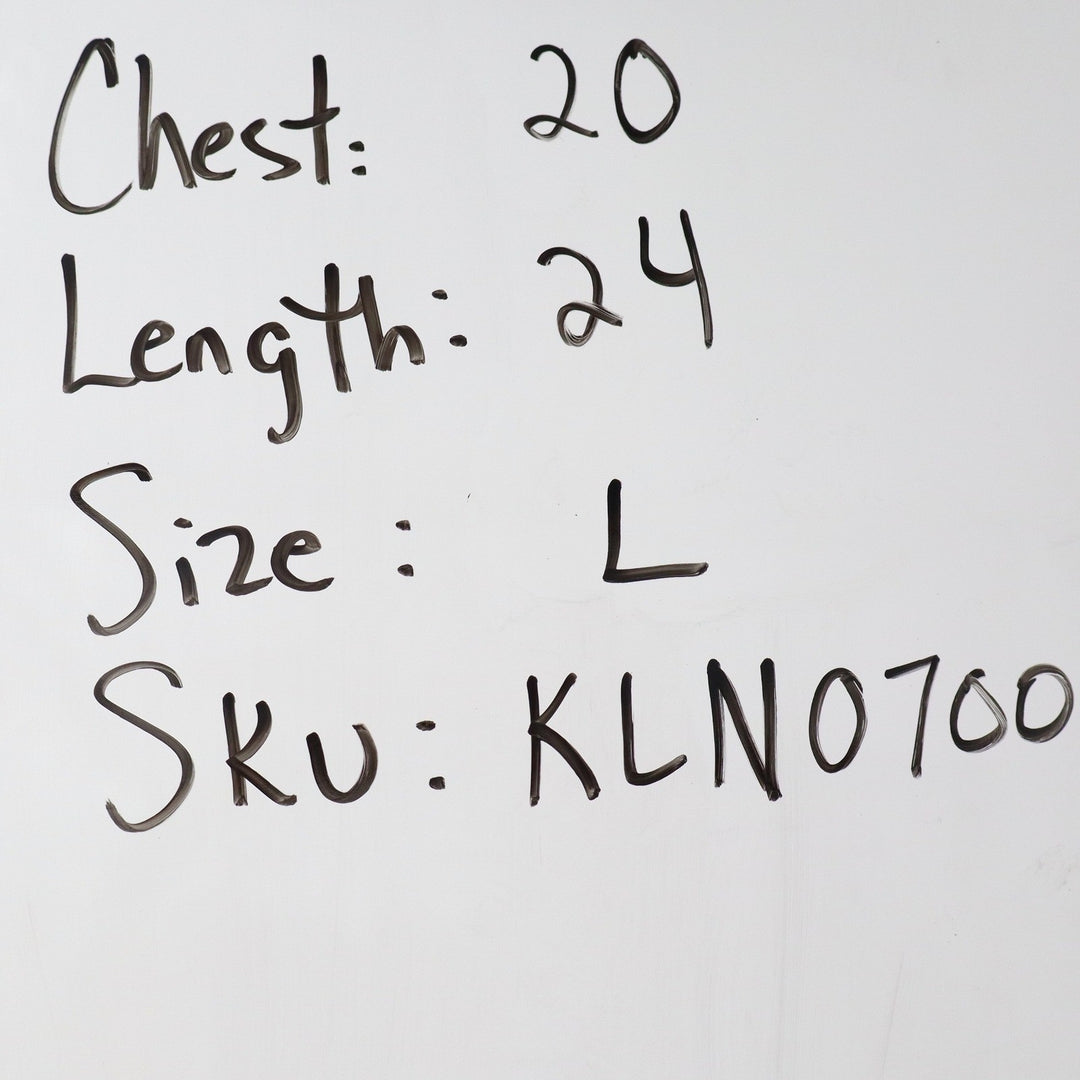 Chest: 20
Length: 24
Size: L
Sku: KLN0700